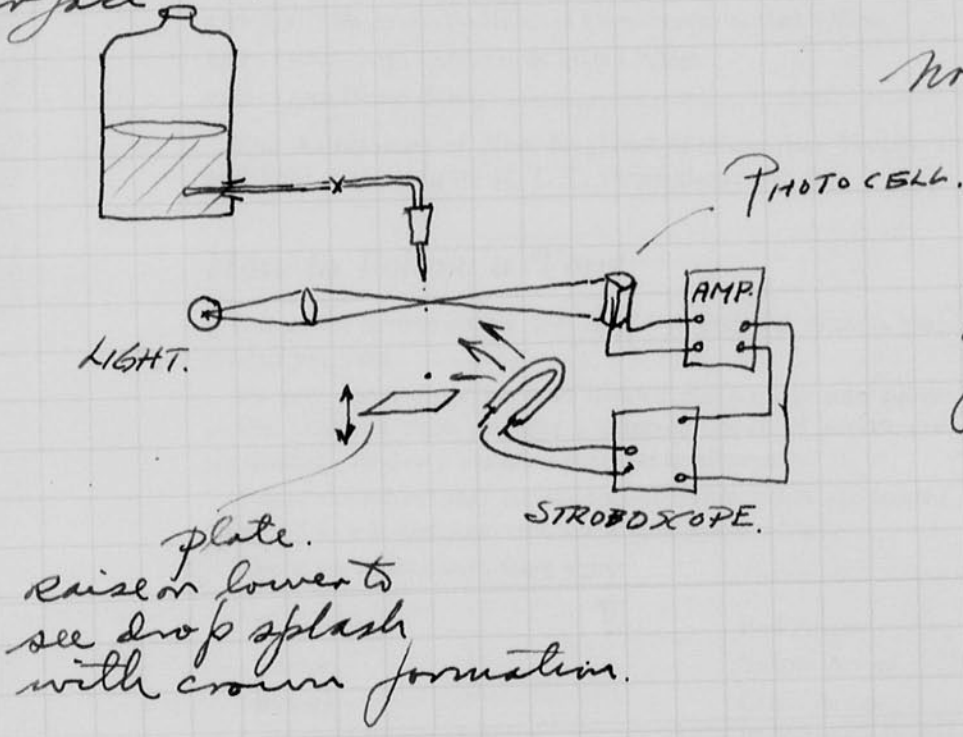 PHOTOCELL.
AMP.
LIGHT.
STROBOSCOPE.
plate.
raise or lower to
see drop splash
with crown formation.